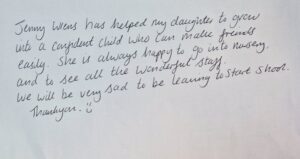 Jenny Wrens has helped my daughter to grow
into a confident child who can make friends
easily. She is always happy to go into nursery.
and to see all the wonderful staff.
We will be very sad to be leaving to start school.
Thankyou. :)